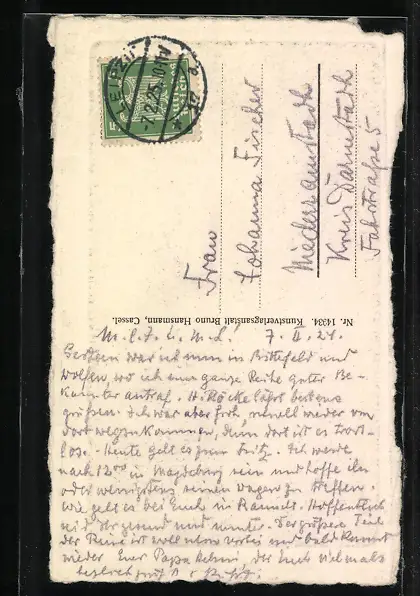 LEIPZIG
-7.2.25.10-11V
* 12 d.
5
Frau
Johanna Fischer
Niederramstadt
Kreis Darmstadt
Fahrstraße 5
Nr. 14334. Kunstverlagsanstalt Bruno Hansmann, Cassel.
M. l. F. L. M. L! 7. II. 24.
Gestern war ich nun in Bitterfeld und
Wolfen, wo ich eine ganze Reihe guter Be-
kannter antraf. H. Röcke läßt bestens
grüßen. Ich war aber froh, schnell wieder von
dort wegzukommen, denn dort ist es trost-
los. Heute geht es zum Fritz. Ich werde
nach 1200 in Magdeburg sein und hoffe ihn
oder wenigstens seinen Wagen zu treffen.
Wie geht es bei Euch in Ramst. Hoffentlich
seid Ihr gesund und munter. Der größere Teil
der Reise ist wohl nun vorbei und bald kommt
wieder Euer Papa heim, der Euch vielmals
herzlich grüßt